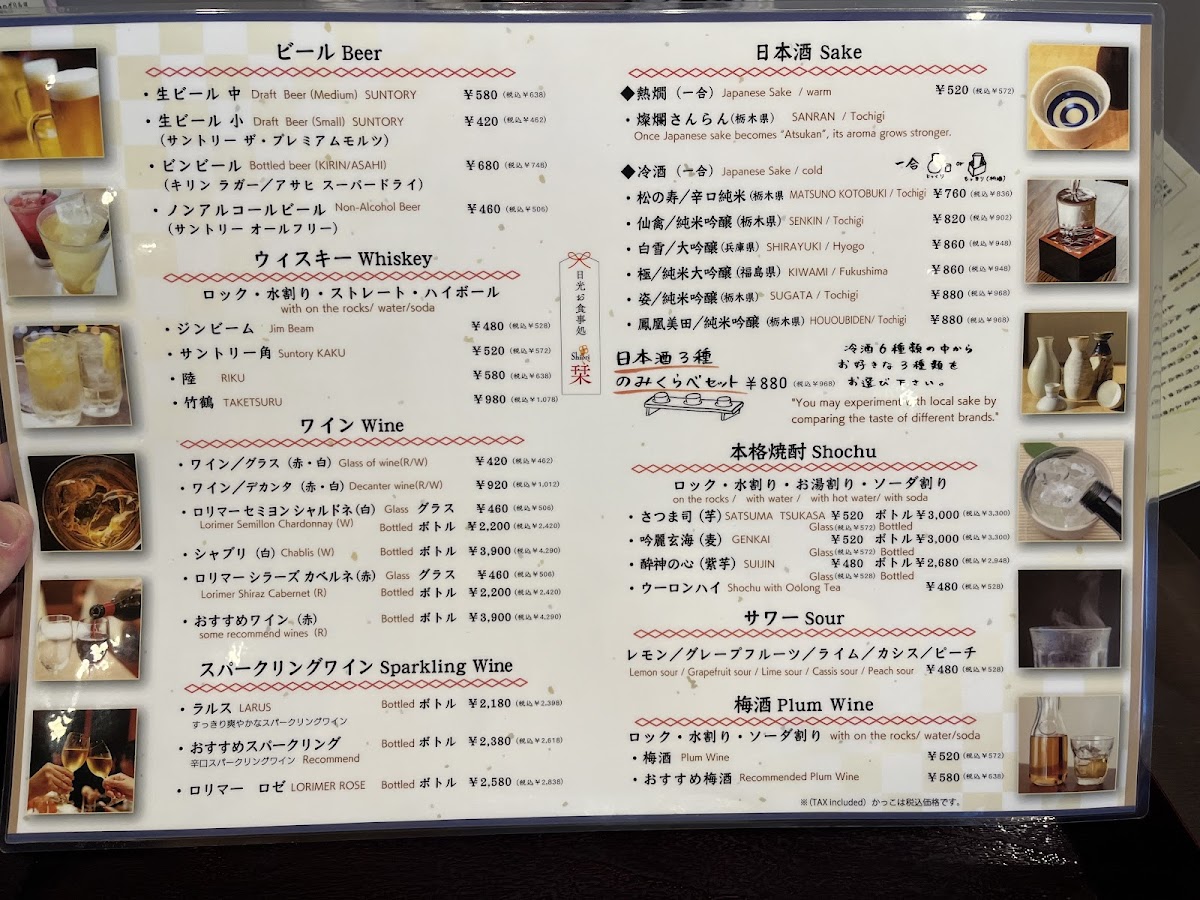 ビール Beer
・生ビール 中 Draft Beer (Medium) SUNTORY ¥580 (税込¥638)
・生ビール 小 Draft Beer (Small) SUNTORY ¥420 (税込¥462)
(サントリー ザ・プレミアムモルツ)
・ビンビール Bottled beer (KIRIN/ASAHI) ¥680 (税込¥748)
(キリン ラガー／アサヒ スーパードライ)
・ノンアルコールビール Non-Alcohol Beer ¥460 (税込¥506)
(サントリー オールフリー)
ウィスキー Whiskey
ロック・水割り・ストレート・ハイボール
with on the rocks/ water/soda
・ジンビーム Jim Beam ¥480 (税込¥528)
・サントリー角 Suntory KAKU ¥520 (税込¥572)
・陸 RIKU ¥580 (税込¥638)
・竹鶴 TAKETSURU ¥980 (税込¥1,078)
ワイン Wine
・ワイン／グラス (赤・白) Glass of wine(R/W) ¥420 (税込¥462)
・ワイン／デカンタ (赤・白) Decanter wine(R/W) ¥920 (税込¥1,012)
・ロリマー セミヨン シャルドネ(白) Glass グラス ¥460 (税込¥506)
Lorimer Semillon Chardonnay (W) Bottled ボトル ¥2,200 (税込¥2,420)
・シャブリ (白) Chablis (W) Bottled ボトル ¥3,900 (税込¥4,290)
・ロリマー シラーズ カベルネ(赤) Glass グラス ¥460 (税込¥506)
Lorimer Shiraz Cabernet (R) Bottled ボトル ¥2,200 (税込¥2,420)
・おすすめワイン (赤) Bottled ボトル ¥3,900 (税込¥4,290)
some recommend wines (R)
スパークリングワイン Sparkling Wine
・ラルス LARUS Bottled ボトル ¥2,180 (税込¥2,398)
すっきり爽やかなスパークリングワイン
・おすすめスパークリング Bottled ボトル ¥2,380 (税込¥2,618)
辛口スパークリングワイン Recommend
・ロリマー ロゼ LORIMER ROSE Bottled ボトル ¥2,580 (税込¥2,838)
日光お食事処
Shiori
栞
日本酒 Sake
◆熱燗 (一合) Japanese Sake / warm ¥520 (税込¥572)
・燦爛さんらん(栃木県) SANRAN / Tochigi
Once Japanese sake becomes "Atsukan", its aroma grows stronger.
◆冷酒 (一合) Japanese Sake / cold 一合 or
・松の寿/辛口純米(栃木県 MATSUNO KOTOBUKI / Tochigi ¥760 (税込¥836)
・仙禽/純米吟醸(栃木県) SENKIN / Tochigi ¥820 (税込¥902)
・白雪/大吟醸(兵庫県) SHIRAYUKI / Hyogo ¥860 (税込¥948)
・極/純米大吟醸(福島県) KIWAMI / Fukushima ¥860 (税込¥948)
・姿/純米吟醸(栃木県) SUGATA / Tochigi ¥880 (税込¥968)
・鳳凰美田/純米吟醸 (栃木県) HOUOUBIDEN/ Tochigi ¥880 (税込¥968)
日本酒3種
のみくらべセット ¥880 (税込¥968)
冷酒6種類の中から
お好きな3種類を
お選び下さい。
"You may experiment with local sake by
comparing the taste of different brands."
本格焼酎 Shochu
ロック・水割り・お湯割り・ソーダ割り
on the rocks / with water / with hot water/ with soda
・さつま司 (芋) SATSUMA TSUKASA ¥520 ボトル¥3,000 (税込¥3,300)
Glass(税込¥572) Bottled
・吟麗玄海 (麦) GENKAI ¥520 ボトル¥3,000 (税込¥3,300)
Glass(税込¥572) Bottled
・酔神の心 (紫芋) SUIJIN ¥480 ボトル¥2,680 (税込¥2,948)
Glass(税込¥528) Bottled
・ウーロンハイ Shochu with Oolong Tea ¥480 (税込¥528)
サワー Sour
レモン／グレープフルーツ／ライム／カシス／ピーチ
Lemon sour / Grapefruit sour / Lime sour / Cassis sour / Peach sour ¥480 (税込¥528)
梅酒 Plum Wine
ロック・水割り・ソーダ割り with on the rocks/ water/soda
・梅酒 Plum Wine ¥520 (税込¥572)
・おすすめ梅酒 Recommended Plum Wine ¥580 (税込¥638)
※(TAX included) かっこは税込価格です。